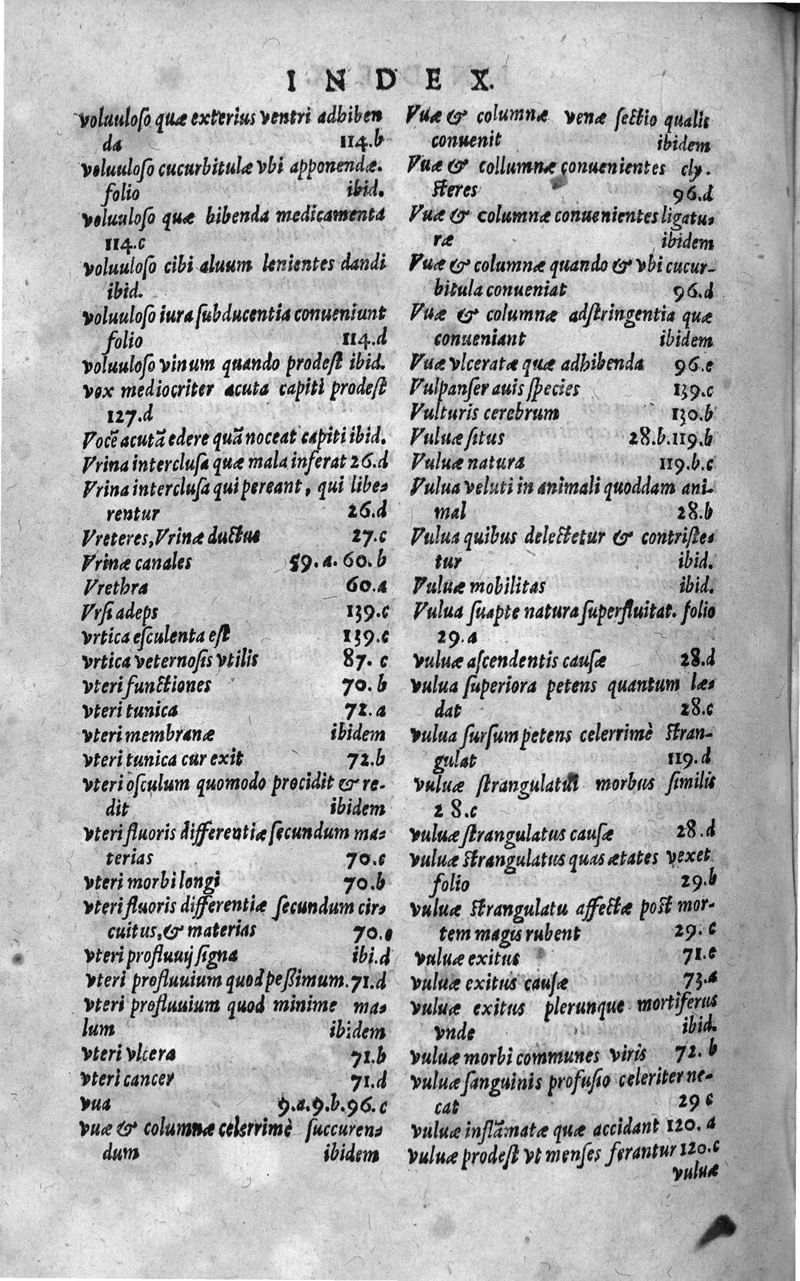 INDEX.
voluuloso quæ exterius ventri adhiben
da 114.b
voluuloso cucurbitulæ vbi apponendæ.
folio ibid.
voluuloso quæ bibenda medicamenta
114.c
voluuloso cibi aluum lenientes dandi
ibid.
voluuloso iura subducentia conueniunt
folio 114.d
voluuloso vinum quando prodest ibid.
vox mediocriter acuta capiti prodest
127.d
Vocẽ acutã edere quã noceat capiti ibid.
Vrina interclusa quæ mala inferat 26.d
Vrina interclusa qui pereant, qui libe-
rentur 26.d
Vreteres, Vrinæ ductus 27.c
Vrinæ canales 59.a.60.b
Vrethra 60.a
Vrsi adeps 139.c
vrtica esculenta est 139.c
vrtica veternosis vtilis 87.c
vteri functiones 70.b
vteri tunica 72.a
vteri membranæ ibidem
vteri tunica cur exit 72.b
vteri osculum quomodo procidit & re-
dit ibidem
vteri fluoris differentiæ secundum ma-
terias 70.e
vteri morbi longi 70.b
vteri fluoris differentiæ secundum cir-
cuitus, & materias 70.e
vteri profluuij signa ibi.d
vteri profluuium quod peßimum. 71.d
vteri profluuium quod minime ma-
lum ibidem
vteri vlcera 71.b
vteri cancer 71.d
vua 9.a.9.b.96.c
vuæ & columnæ celerrimè succuren-
dum ibidem
Vuæ & columnæ venæ sectio qualis
conuenit ibidem
Vuæ & collumnæ conuenientes cly-
steres 96.d
Vuæ & columnæ conuenientes ligatu-
ræ ibidem
Vuæ & columnæ quando & vbi cucur-
bitula conueniat 96.d
Vuæ & columnæ adstringentia quæ
conueniant ibidem
Vuæ vlceratæ quæ adhibenda 96.e
Vulpanser auis species 139.c
Vulturis cerebrum 130.b
Vuluæ situs 28.b.119.b
Vuluæ natura 119.b.c
Vulua veluti in animali quoddam ani-
mal 28.b
Vulua quibus delectetur & contriste-
tur ibid.
Vuluæ mobilitas ibid.
Vulua suapte natura superfluitat. folio
29.a
vuluæ ascendentis causæ 28.d
vulua superiora petens quantum læ-
dat 28.c
vulua sursum petens celerrimè stran-
gulat 119.d
vuluæ strangulatui morbus similis
28.c
vuluæ strangulatus causæ 28.d
vuluæ strangulatus quas ætates vexet
folio 29.b
vuluæ strangulatu affectæ post mor-
tem magis rubent 29.c
vuluæ exitus 71.e
vuluæ exitus causæ 73.a
vuluæ exitus plerunque mortiferus
vnde ibid.
vuluæ morbi communes viris 72.b
vuluæ sanguinis profusio celeriter ne-
cat 29 c
vuluæ inflãmatæ quæ accidant 120.a
vuluæ prodest vt menses ferantur 120.c
vuluæ